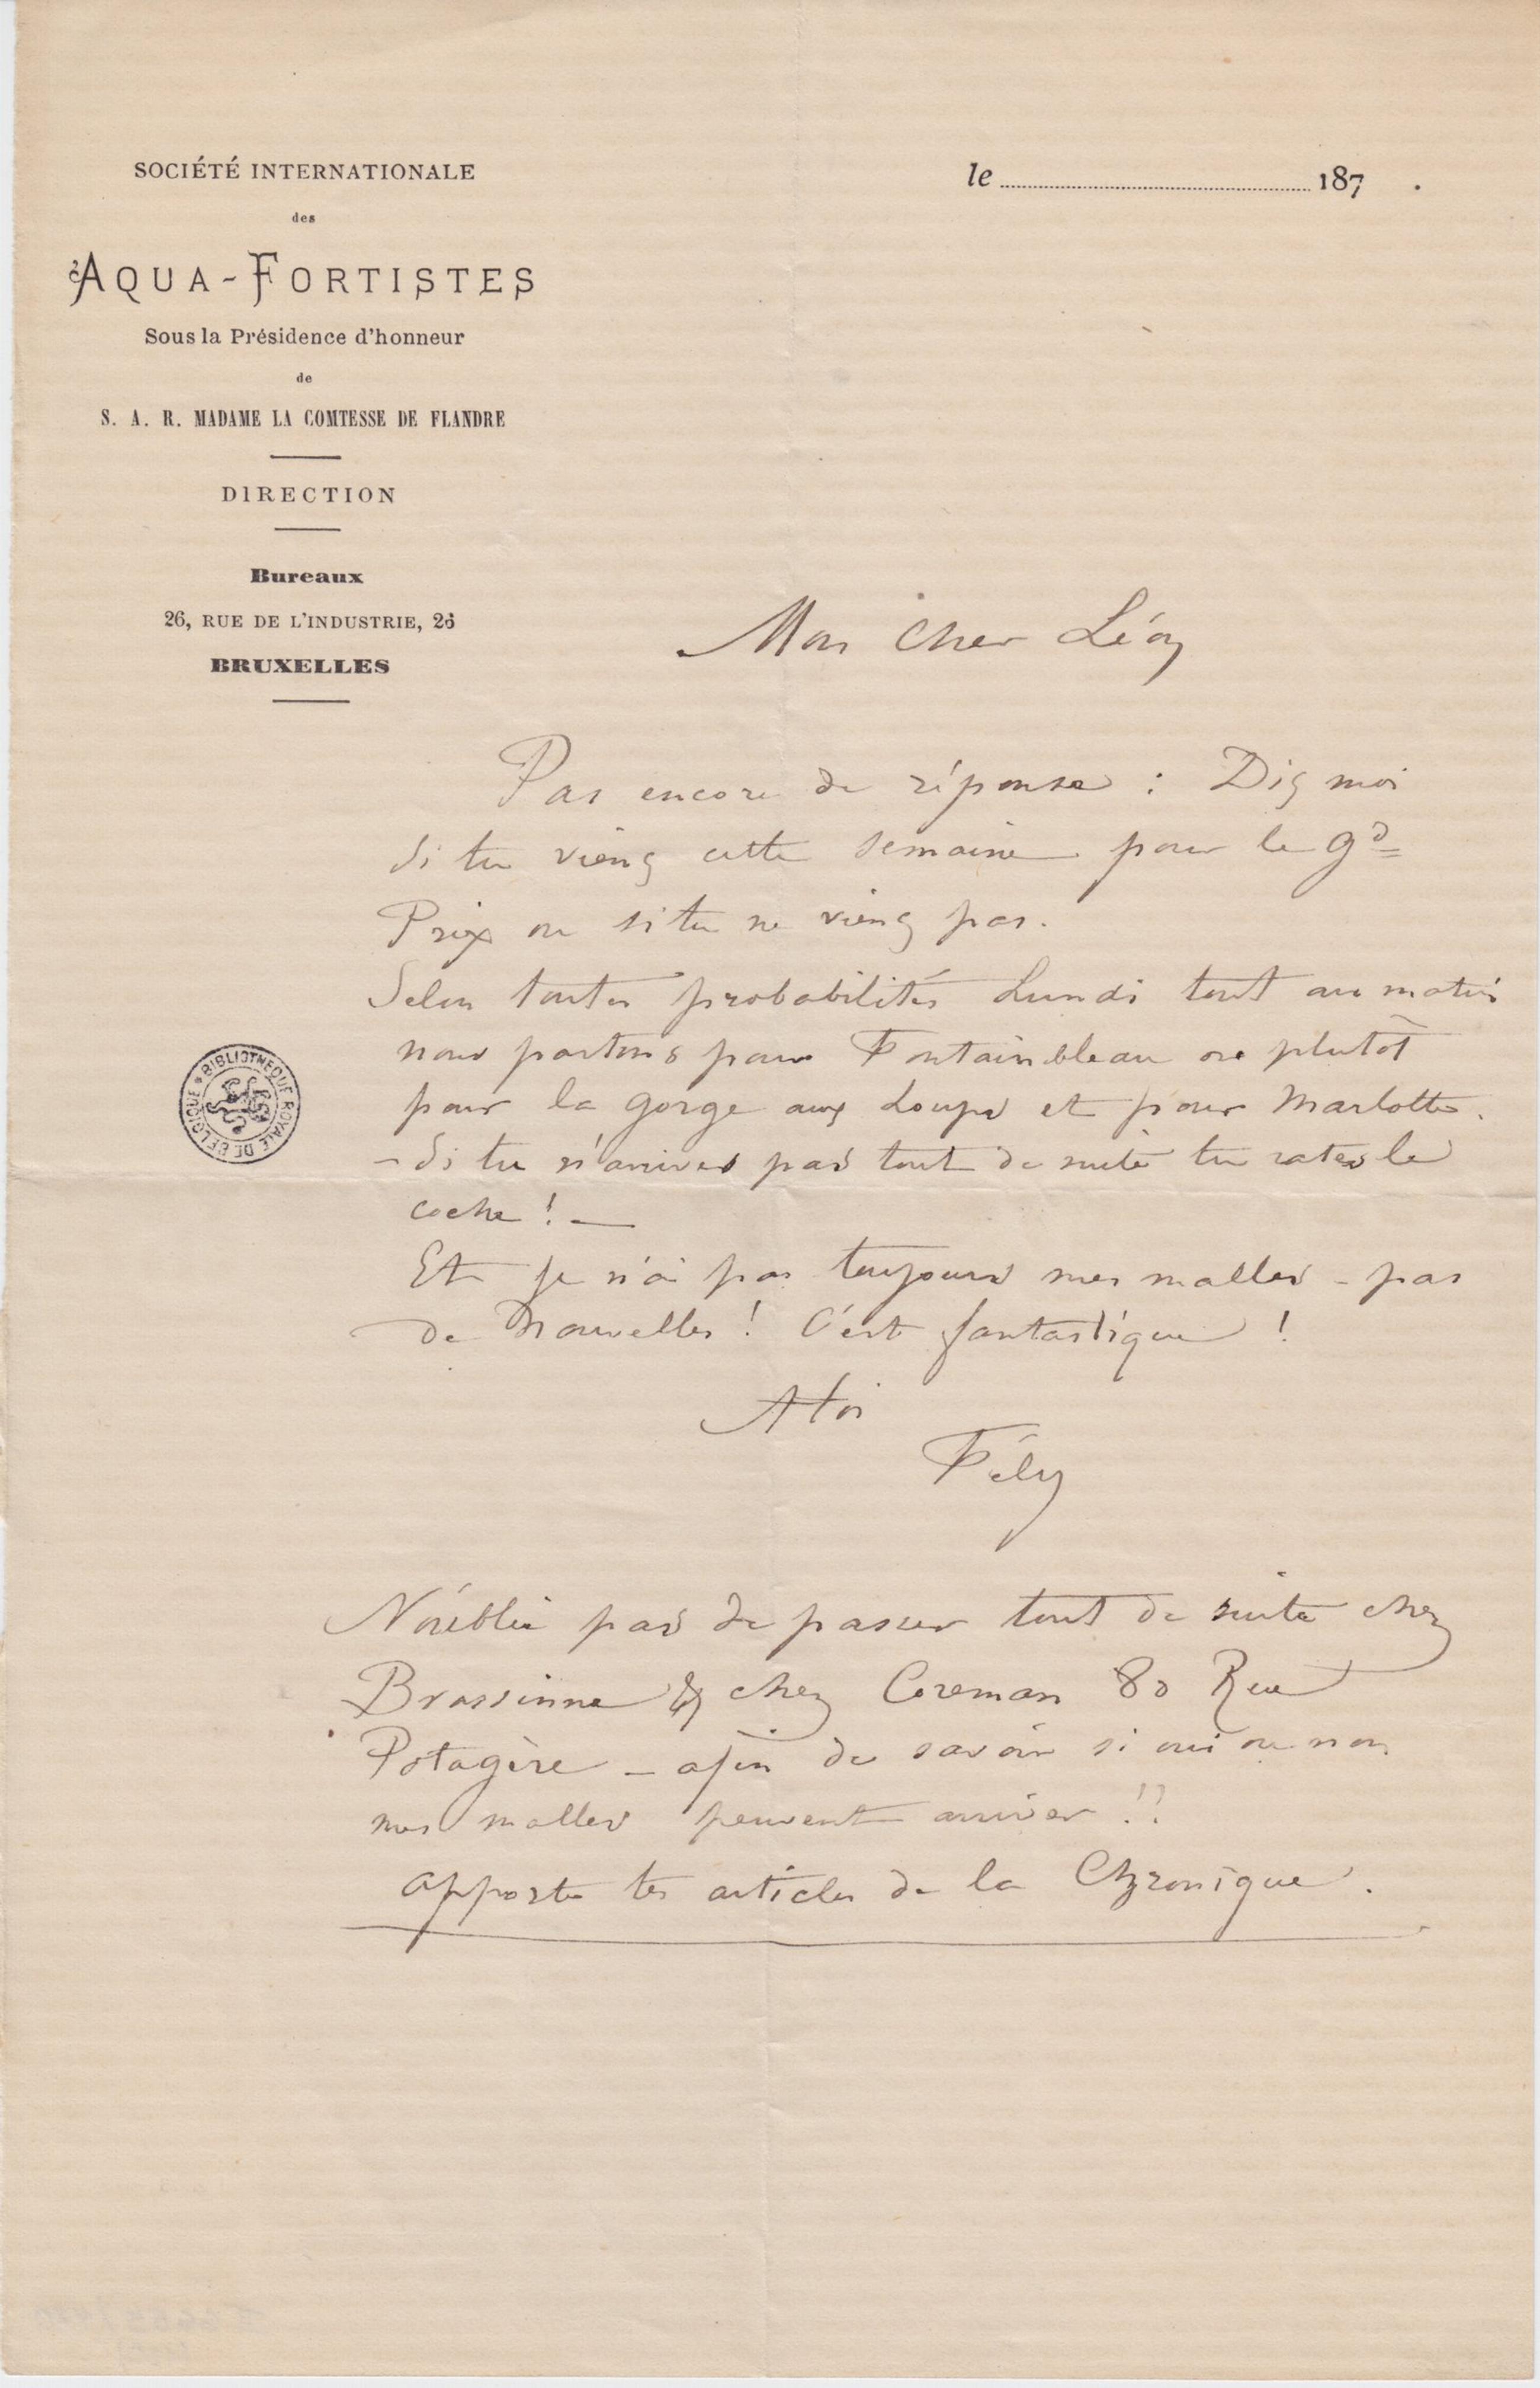 SOCIÉTÉ INTERNATIONALE
des
AQUA-FORTISTES
Sous la Présidence d'honneur
de
S. A. R. MADAME LA COMTESSE DE FLANDRE
DIRECTION
Bureaux
26, RUE DE L'INDUSTRIE, 26
BRUXELLES
le 187 .
Mon Cher Léon
Pas encore de réponse : Dis moi
si tu viens cette semaine pour le gd
Prix ou si tu ne viens pas.
Selon toutes probabilités Lundi tout au matin
nous partons pour Fontainbleau ou plutôt
pour la gorge aux Loups et pour Marlotte.
– Si tu n'arrives pas tout de suite tu rates le
coche ! –
Et je n'ai pas toujours mes malles – pas
de Nouvelles ! C'est fantastique !
A toi
Fély
N'oublie pas de passer tout de suite chez
Brassinne & chez Coreman 80 Rue
Potagère – afin de savoir si oui ou non
mes malles peuvent arriver !?
apporte tes articles de la Chronique.
BIBLIOTHEQUE ROYALE DE BELGIQUE